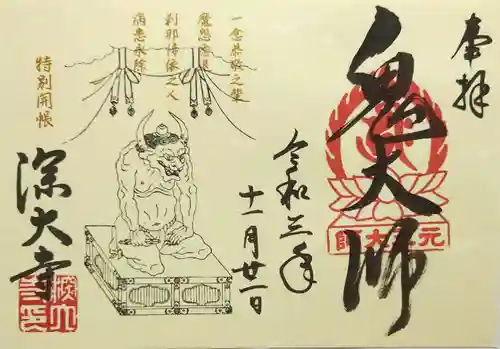 奉拝
鬼大師
元三大師
令和三年
十一月廿一日
一念恭敬之輩
刹那傍像之人
病患永除
特別開帳
深大寺